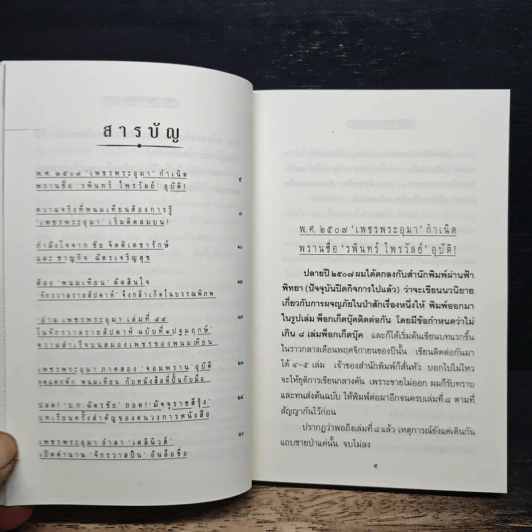 สารบัญ
พ.ศ. ๒๕๐๗ 'เพชรพระอุมา' กำเนิด
พรานชื่อ 'รพินทร์ ไพรวัลย์' อุบัติ! ๕
ความจริงที่พนมเทียนต้องการรู้ ๗
'เพชรพระอุมา' เริ่มติดลมบน!
กำลังใจจาก ชัย จิตติเดชารักษ์
และ ชาญกิจ ฉัตรเจริญสุข
คือ 'พนมเทียน' ตัดสินใจ
'จักรวาลรายสัปดาห์' จึงกล้าเกิดในบรรณพิภพ
'อ่าน เพชรพระอุมา เล่มที่ ๙๙
ในจักรวาลรายสัปดาห์ ฉบับที่
ความสำเร็จบนสมองเพชรของพนมเทียน
เพชรพระอุมา ภาคสอง 'จอมพราน' อุบัติ
พนมเทียน กับหนังสือที่ปั้นกับมือ
ปลด! 'บ.ก.ฉัตรชัย' ถอด! 'มัจจุราชสีรุ้ง'
บทเรียนครั้งสำคัญของคนวงการหนังสือ
เพชรพระอุมา อำลา 'เดลินิวส์'
เปิดตำนาน 'จักรวาลปืน' อันลือชื่อ
พ.ศ. ๒๕๐๗ 'เพชรพระอุมา' กำเนิด
พรานชื่อ 'รพินทร์ ไพรวัลย์' อุบัติ!
ปลายปี ๒๕๐๗ ผมได้ตกลงกับสำนักพิมพ์ผ่านฟ้า
พิทยา (ปัจจุบันปิดกิจการไปแล้ว) ว่าจะเขียนนวนิยาย
เกี่ยวกับการผจญภัยในป่าสักเรื่องหนึ่งให้ พิมพ์ออกมา
ในรูปเล่ม พ็อกเก็ตบุ๊คติดต่อกัน โดยมีข้อกำหนดว่าไม่
เกิน ๘ เล่มพ็อกเก็ตบุ๊ค และก็ได้เริ่มต้นเขียนบทแรกขึ้น
ในราวกลางเดือนพฤศจิกายนของปีนั้น เขียนติดต่อกันมา
ได้ ๔-๕ เล่ม เจ้าของสำนักพิมพ์ก็สั่นหัว บอกไปไม่ไหว
จะให้ยุติการเขียนกลางคัน เพราะขายไม่ออก ผมก็รับทราบ
และทนส่งต้นฉบับ ให้พิมพ์ต่อมาอีกจนครบเล่มที่ ๘ ตามที่
สัญญากันไว้ก่อน
ปรากฏว่าพอถึงเล่มที่ ๘ แล้ว เหตุการณ์ยังแค่เดินกัน
แถบชายป่าแค่นั้น จบไม่ลง
๕